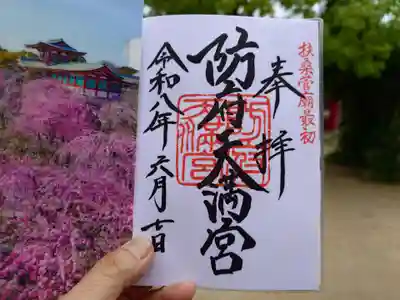 扶桑菅廟最初
奉拝
防府天満宮
令和八年六月七日